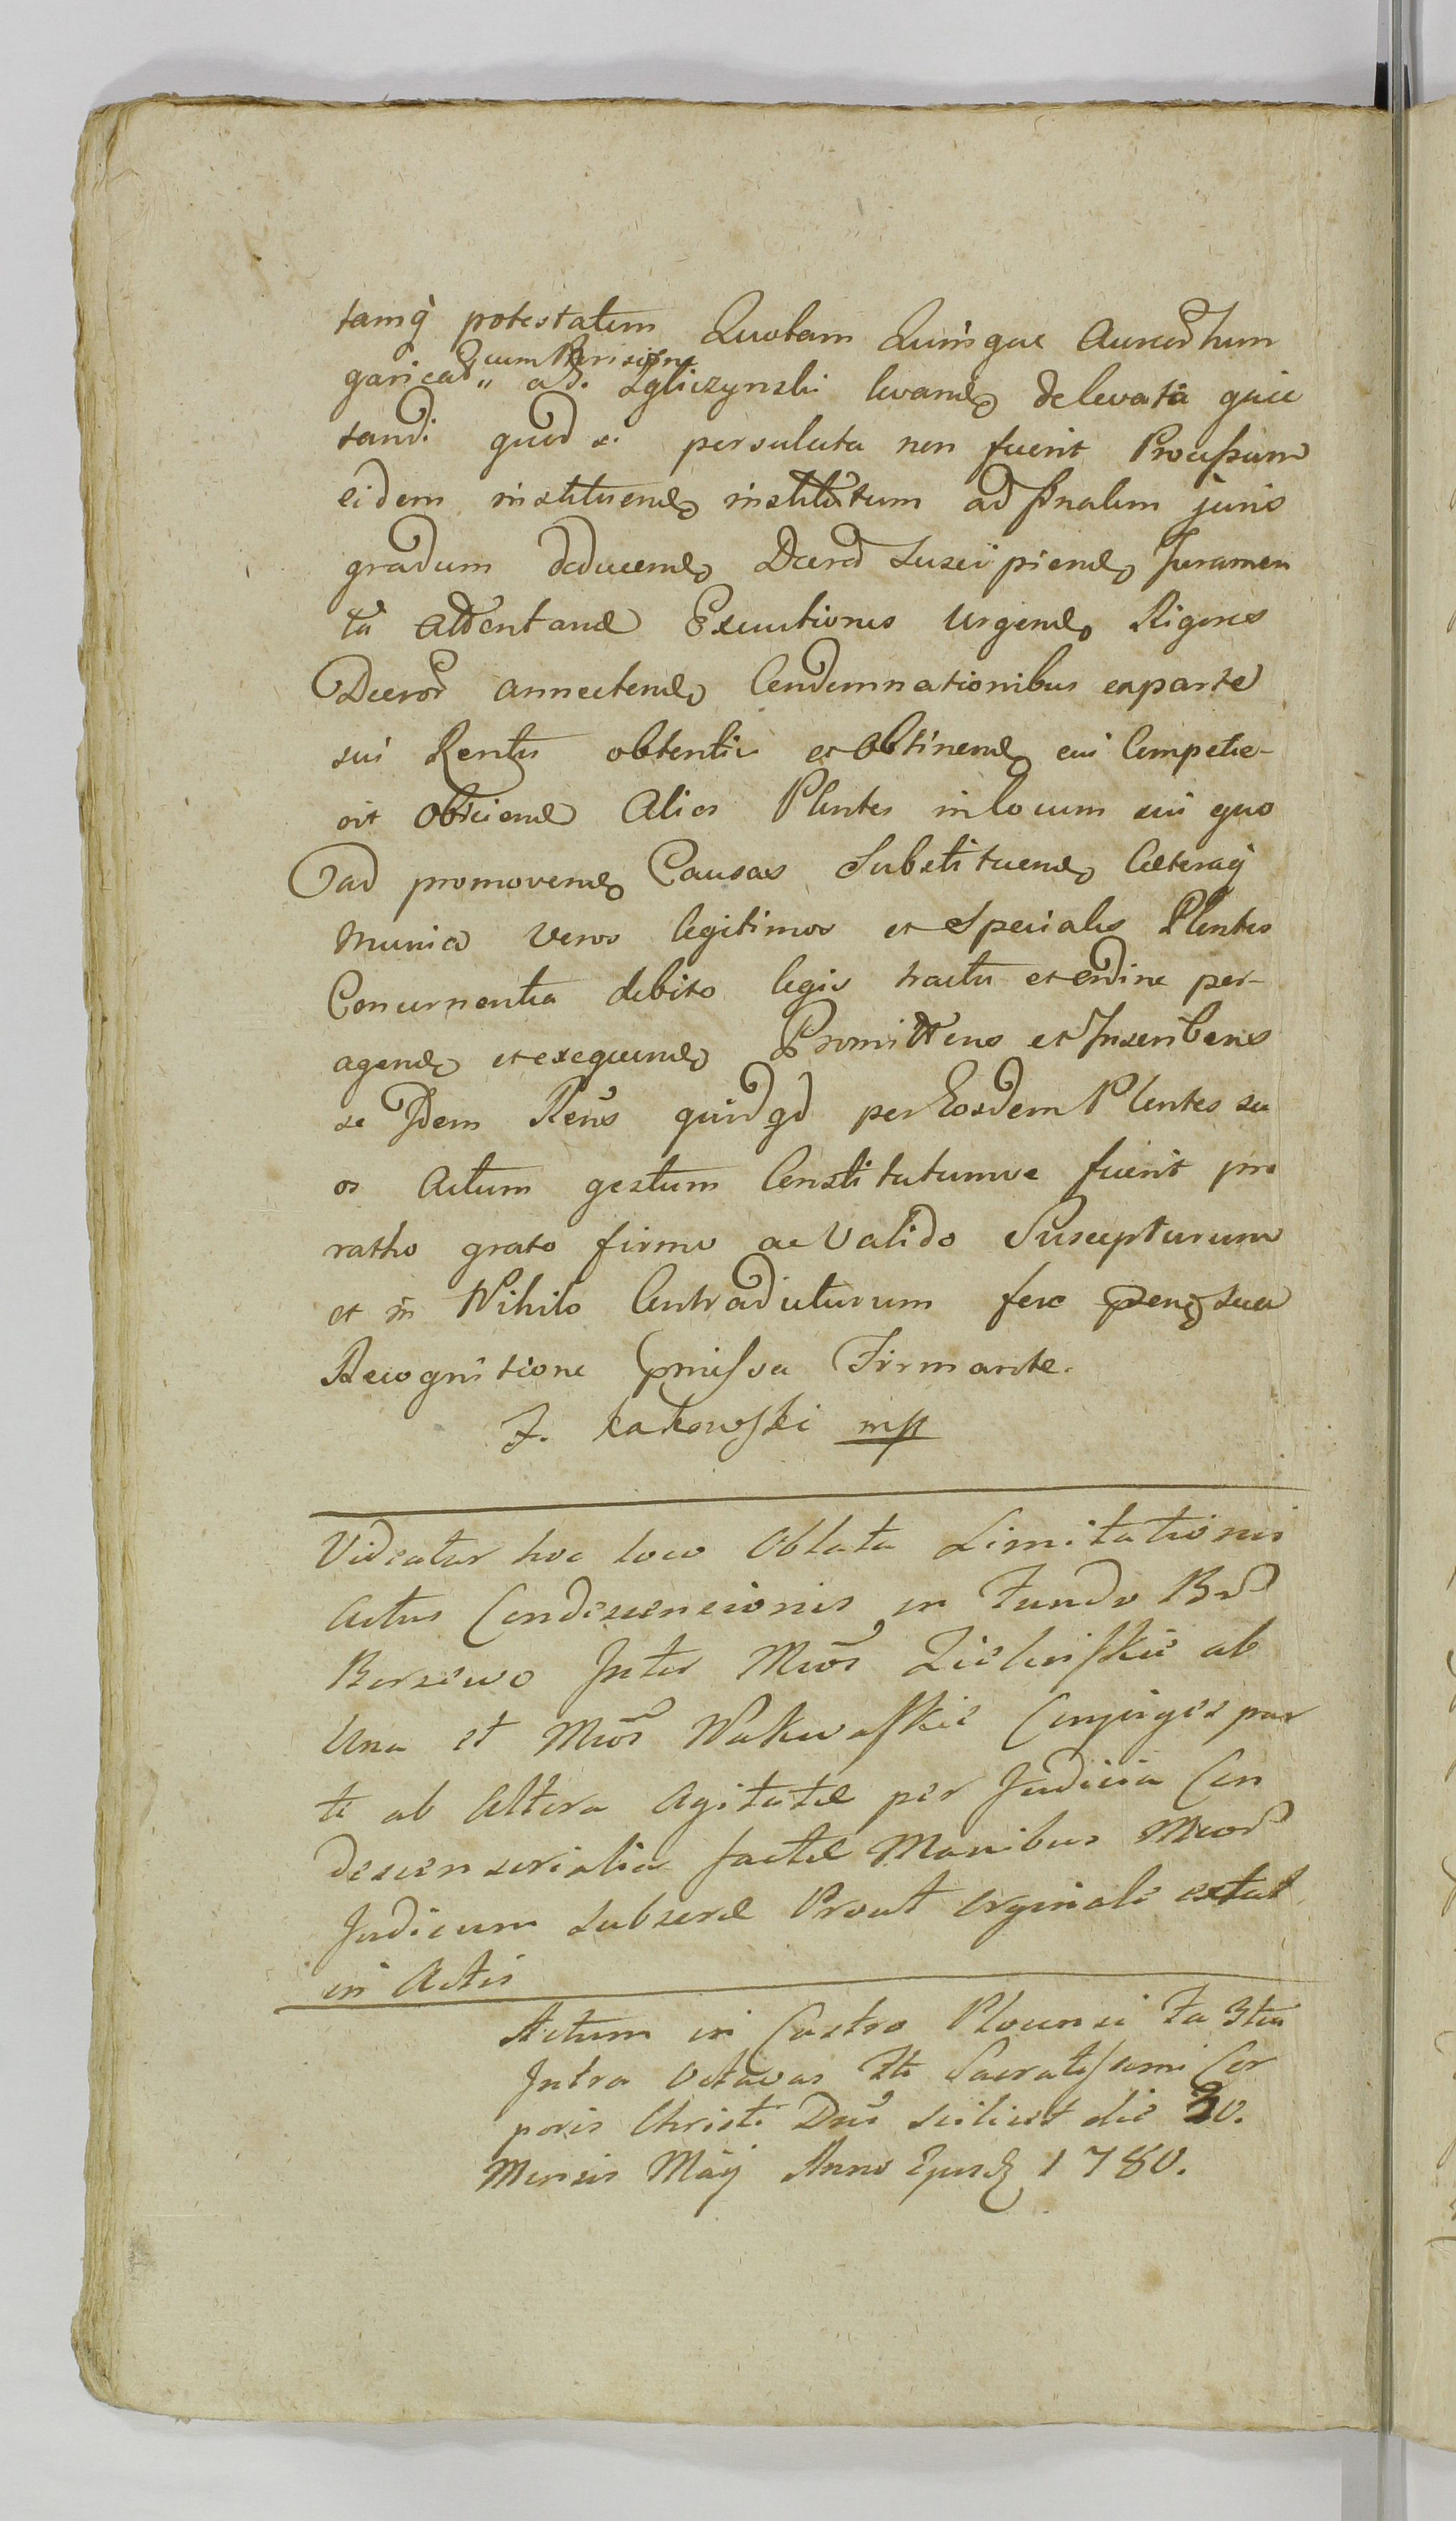 tamq̀ potestatem Quotam Quinque Aureor̃ hun
garical̃ " a G. Zgliczynski levand̃ delevata quie
cum Pervisione
tandi quod si persoluta non fuerit Processum
eidem instituend̃ institutum ad finalem juris
gradum deducend̃ Decret̃ Suscipiend̃ Juramen
ta Attentand̃ Executiones Urgend̃ Rigores
Decror̃ annectend̃ Condemnationibus exparte
sui Rentis obtentis et obtinend̃ cui Competie-
rit Obiciend̃ Alios Plentes in locum sui quo
ad promovend̃ Causas Substituend̃ Cæteraq̃
Munia veros legitimos et Speciales Plentes
Concernentia debito legis tractu et ordine per-
agend̃ et exequend̃ Promittens et Inscribens
se Idem Rens̃ quidqd̃ per Eosdem Plentes su
os Actum gestum Constitutumve fuerit pro
ratho grato firmo ac Valido Suscepturum
et in Nihilo Contradicturum fore sua
Recognitione pmissa Firmante.
J. Kakowski mp
Videatur hoc loco Oblata Limitationis
Actus Condescensionis in Fundo Bnor̃
Borzewo Inter Mcos̃ Zielinskie ab
Una et Mcos̃ Wakowskie Conjuges par
te ab Altera Agitatæ per Judicia Con
descensorialia factæ Manibus Mcor̃
Judicum subscræ Prout orginale extat
in Actis
Actum in Castro Plocensi Fa 3tia
Intra Octavas Fti Sacratissimi Cor
poris Christi Dni scilicet die 30.
Mensis Maij Anno Ejusd̃ 1780.